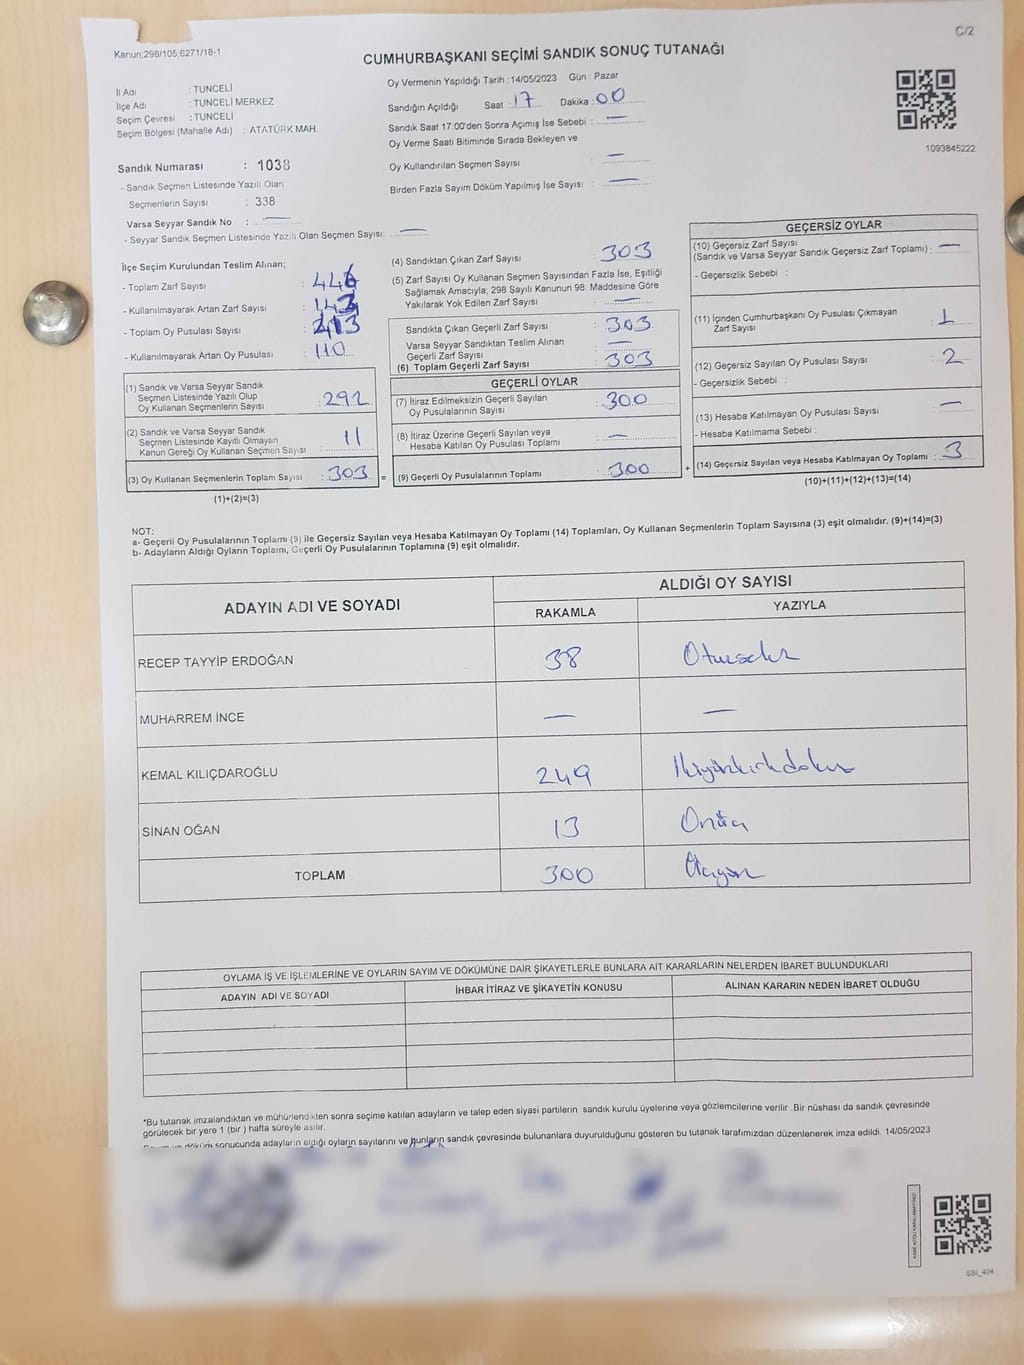 Kanun;298/105,6271/18-1
C/2
CUMHURBAŞKANI SEÇİMİ SANDIK SONUÇ TUTANAĞI
İl Adı : TUNCELİ
İlçe Adı : TUNCELİ MERKEZ
Seçim Çevresi : TUNCELİ
Seçim Bölgesi (Mahalle Adı) : ATATÜRK MAH.
Sandık Numarası : 1038
- Sandık Seçmen Listesinde Yazılı Olan
Seçmenlerin Sayısı : 338
Varsa Seyyar Sandık No : —
- Seyyar Sandık Seçmen Listesinde Yazılı Olan Seçmen Sayısı: —
Oy Vermenin Yapıldığı Tarih : 14/05/2023 Gün : Pazar
Sandığın Açıldığı Saat : 17 Dakika : 00
Sandık Saat 17:00'den Sonra Açımış İse Sebebi : —
Oy Verme Saati Bitiminde Sırada Bekleyen ve
Oy Kullandırılan Seçmen Sayısı : —
Birden Fazla Sayım Döküm Yapılmış İse Sayısı : —
1093845222
İlçe Seçim Kurulundan Teslim Alınan;
- Toplam Zarf Sayısı : 446
- Kullanılmayarak Artan Zarf Sayısı : 143
- Toplam Oy Pusulası Sayısı : 413
- Kullanılmayarak Artan Oy Pusulası : 110
(1) Sandık ve Varsa Seyyar Sandık
Seçmen Listesinde Yazılı Olup
Oy Kullanan Seçmenlerin Sayısı : 292
(2) Sandık ve Varsa Seyyar Sandık
Seçmen Listesinde Kayıtlı Olmayan
Kanun Gereği Oy Kullanan Seçmen Sayısı : 11
(3) Oy Kullanan Seçmenlerin Toplam Sayısı : 303 =
(1)+(2)=(3)
(4) Sandıktan Çıkan Zarf Sayısı : 303
(5) Zarf Sayısı Oy Kullanan Seçmen Sayısından Fazla İse, Eşitliği
Sağlamak Amacıyla; 298 Sayılı Kanunun 98. Maddesine Göre
Yakılarak Yok Edilen Zarf Sayısı : —
Sandıkta Çıkan Geçerli Zarf Sayısı : 303
Varsa Seyyar Sandıktan Teslim Alınan
Geçerli Zarf Sayısı : —
(6) Toplam Geçerli Zarf Sayısı : 303
GEÇERLİ OYLAR
(7) İtiraz Edilmeksizin Geçerli Sayılan
Oy Pusulalarının Sayısı : 300
(8) İtiraz Üzerine Geçerli Sayılan veya
Hesaba Katılan Oy Pusulası Toplamı : —
(9) Geçerli Oy Pusulalarının Toplamı : 300 +
GEÇERSİZ OYLAR
(10) Geçersiz Zarf Sayısı
(Sandık ve Varsa Seyyar Sandık Geçersiz Zarf Toplamı) : —
- Geçersizlik Sebebi :
(11) İçinden Cumhurbaşkanı Oy Pusulası Çıkmayan
Zarf Sayısı : 1
(12) Geçersiz Sayılan Oy Pusulası Sayısı : 2
- Geçersizlik Sebebi :
(13) Hesaba Katılmayan Oy Pusulası Sayısı : —
- Hesaba Katılmama Sebebi :
(14) Geçersiz Sayılan veya Hesaba Katılmayan Oy Toplamı : 3
(10)+(11)+(12)+(13)=(14)
NOT:
a- Geçerli Oy Pusulalarının Toplamı (9) ile Geçersiz Sayılan veya Hesaba Katılmayan Oy Toplamı (14) Toplamları, Oy Kullanan Seçmenlerin Toplam Sayısına (3) eşit olmalıdır. (9)+(14)=(3)
b- Adayların Aldığı Oyların Toplamı, Geçerli Oy Pusulalarının Toplamına (9) eşit olmalıdır.
ADAYIN ADI VE SOYADI
ALDIĞI OY SAYISI
RAKAMLA YAZIYLA
RECEP TAYYİP ERDOĞAN 38 Otuzsekiz
MUHARREM İNCE — —
KEMAL KILIÇDAROĞLU 249 İkiyüzkırkdokuz
SİNAN OĞAN 13 Onüç
TOPLAM 300 Üçyüz
OYLAMA İŞ VE İŞLEMLERİNE VE OYLARIN SAYIM VE DÖKÜMÜNE DAİR ŞİKAYETLERLE BUNLARA AİT KARARLARIN NELERDEN İBARET BULUNDUKLARI
ADAYIN ADI VE SOYADI İHBAR İTİRAZ VE ŞİKAYETİN KONUSU ALINAN KARARIN NEDEN İBARET OLDUĞU
*Bu tutanak imzalandıktan ve mühürlendikten sonra seçime katılan adayların ve talep eden siyasi partilerin sandık kurulu üyelerine veya gözlemcilerine verilir .Bir nüshası da sandık çevresinde
görülecek bir yere 1 (bir ) hafta süreyle asılır.
döküm sonucunda adayların aldığı oyların sayılarını ve bunların sandık çevresinde bulunanlara duyurulduğunu gösteren bu tutanak tarafımızdan düzenlenerek imza edildi. 14/05/2023